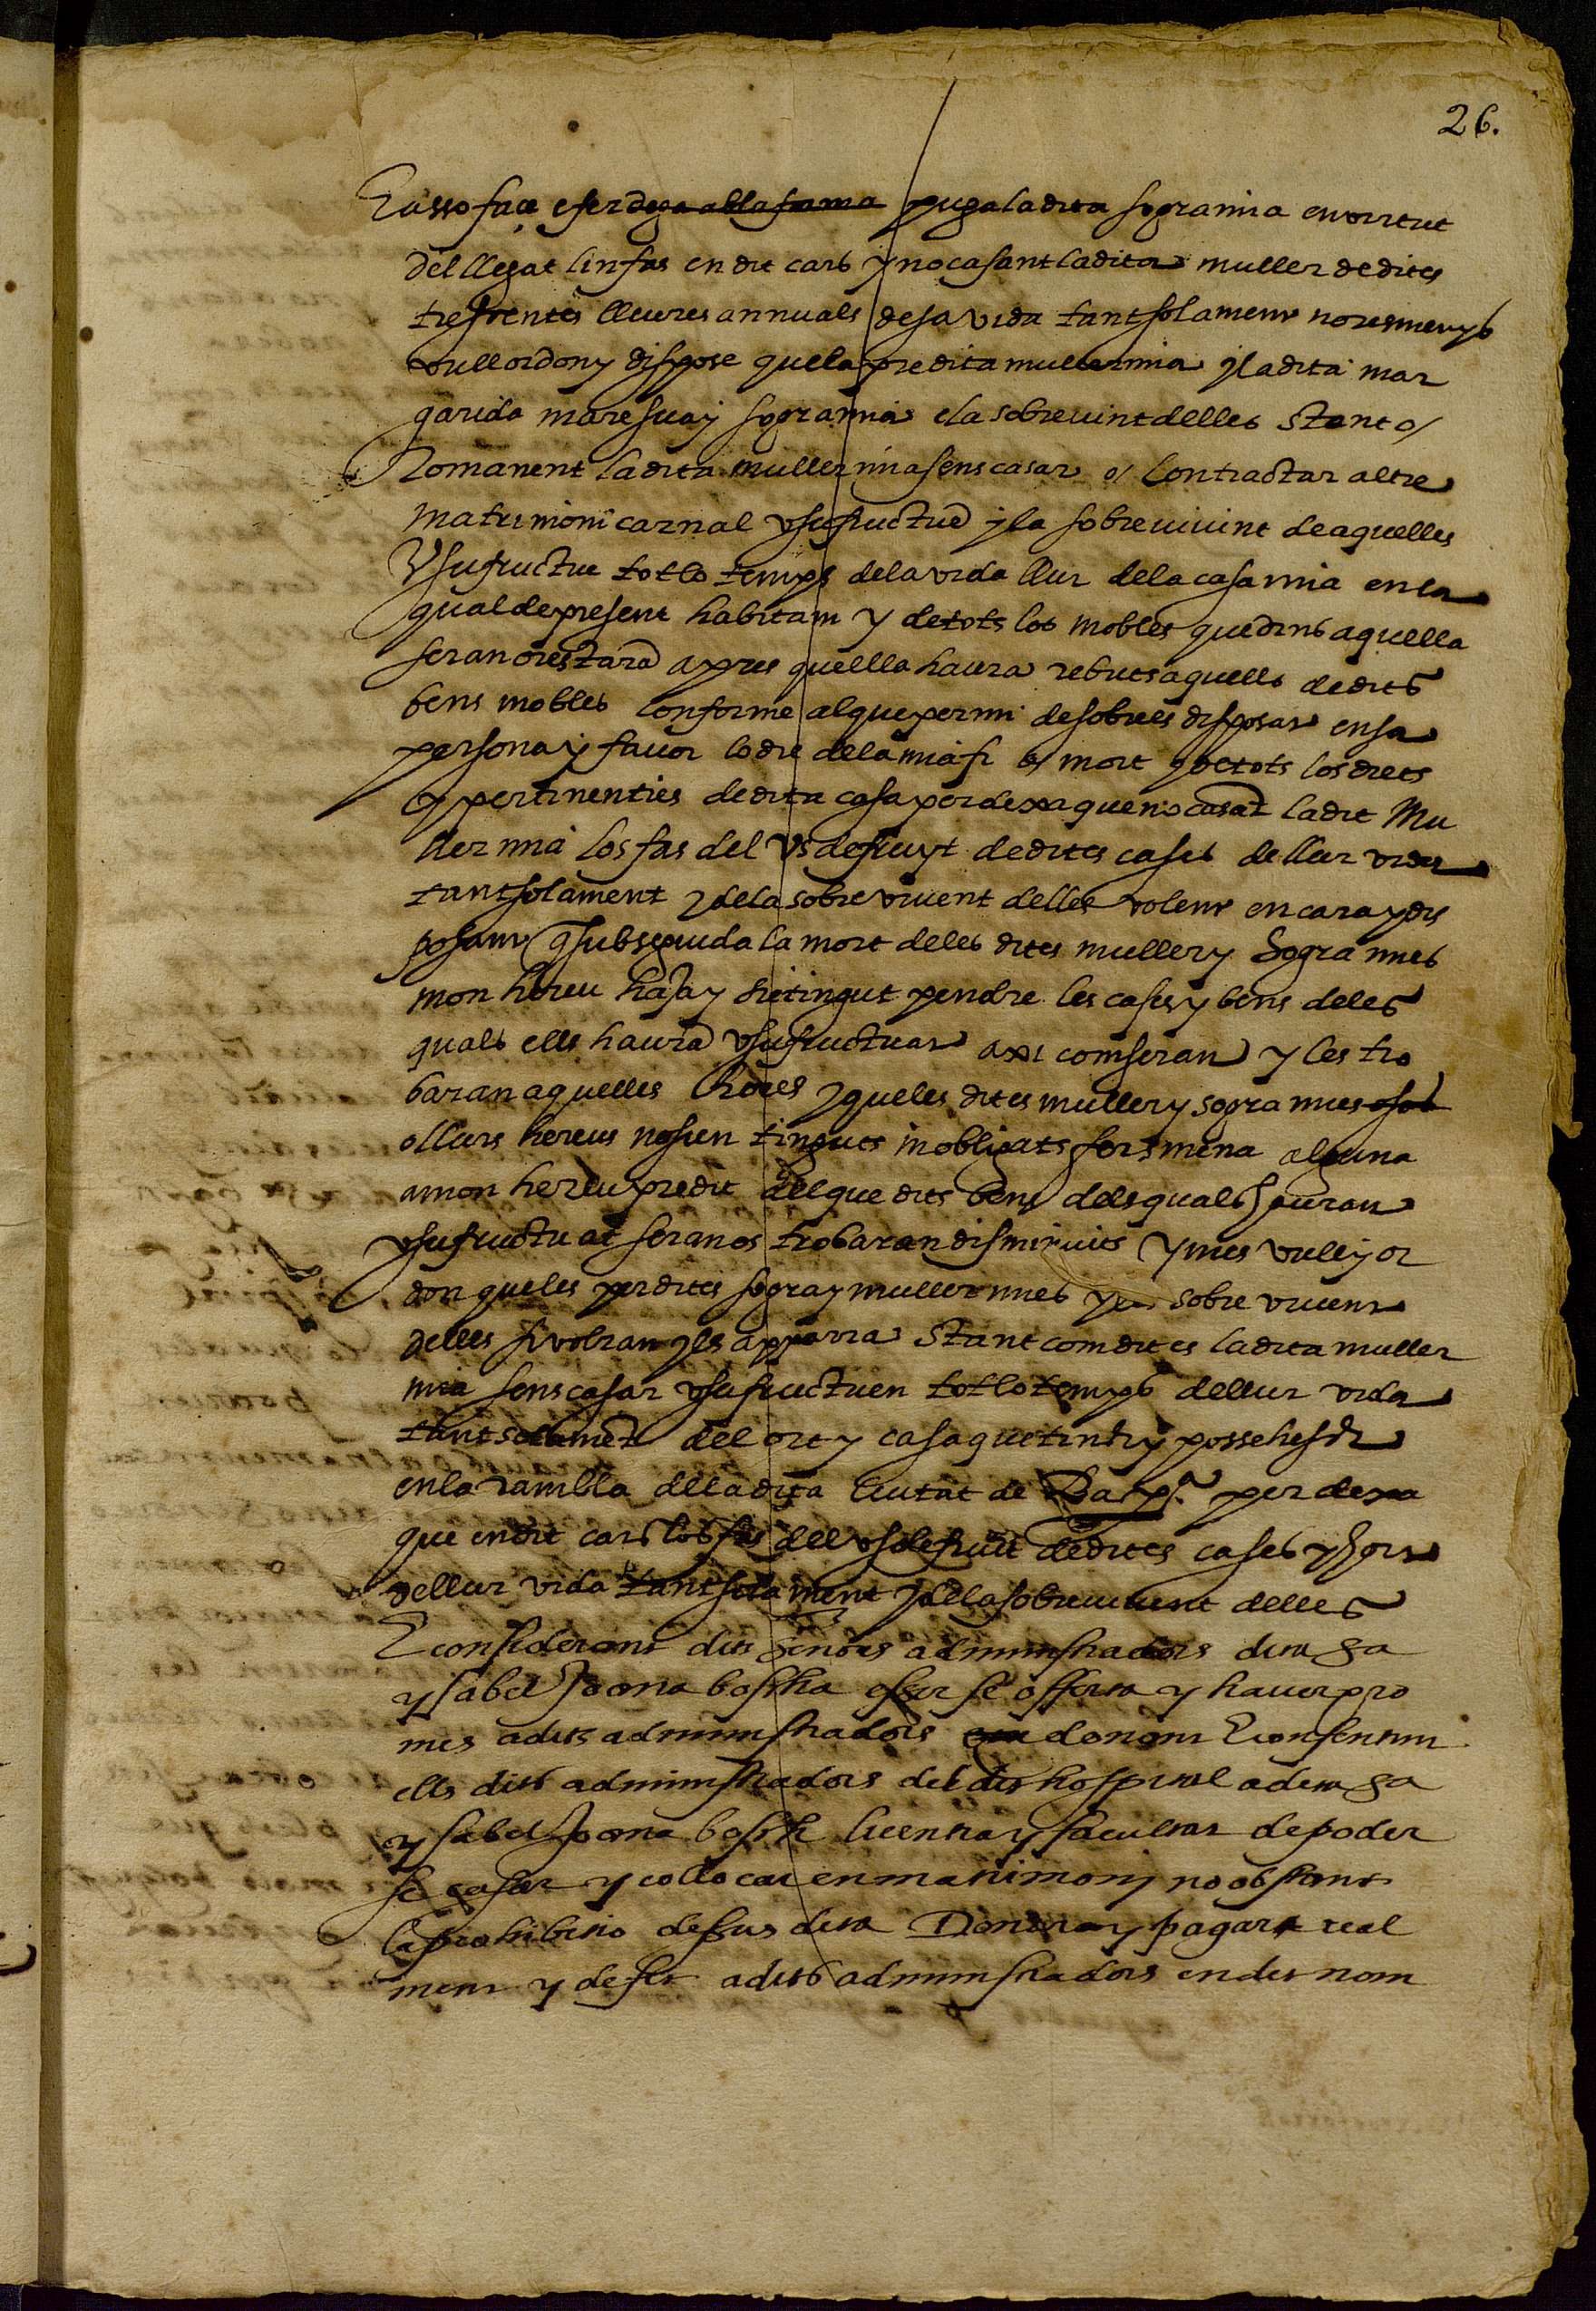 26.
E asso faça e fer dega ab la forma puga la dita sogra mia en virtut
del llegat li n fas en dit cars y no casant la dita muller de dites
trescentes lliures annuals de sa vida tant solament noresmenys
vull ordon y dispose que la predita muller mia y la dita mar
garida mare sua y sogra mia e la sobrevivint delles stant o/
Romanent la dita muller mia sens casar o/ contractar altre
matrimoni carnal usufructue y la sobrevivint de aquelles
Usufructue tot lo temps de la vida llur de la casa mia en la
qual de present habitam y de tots los mobles que dins aquella
seran o restara apres quella haura rebuts aquells de dits
bens mobles conforme al que per mi desobre es disposat en sa
persona y favor lo die de la mia fi o/ mort y de tots los drets
y pertinenties de dita casa per dexa que no casat la dit Mu
ller mia los fas del us de fruyt de dites cases de llur vida
tant solament y de la sobrevivent delles volent encara y dis
posant q subseguida la mort de les dites muller y Sogra mies
mon hereu haja y sie tingut pendre les cases y bens de les
quals elles haura usufructuat axi com seran y les tro
baran aquelles hores y que les dites muller y sogra mies
o llurs hereus no sien tinguts ni obligats fer smena alguna
a mon hereu predit del que dits bens dels quals hauran
usufructuat seran o s trobaran disminuits y mes vull y or
don que les perdites sogra y muller mies y sobre vivent
delles si volran y ls apparra stant com dit es la dita muller
mia sens casar usufructuen tot lo temps de llur vida
tant solament del ort y casa que tinch y possehesch
en la rambla de la dita Ciutat de Barna. per dexa
que en dit cars los fas del us de fruit de dites cases y hort
de llur vida tant solament y de la sobrevivent delles
E considerant dits senors administradors dita Sa
ysabel Joana boscha esser se offerta y haver pro
mes a dits administradors donant E consentint
ells dits administradors del dit hospital a dita Sa
ysabel Joana bosch licentia y facultat de poder
se casar y collocar en matrimoni no obstant
la prohibitio dessus dita Donara y pagara real
ment y de fet a dits administradors en dit nom